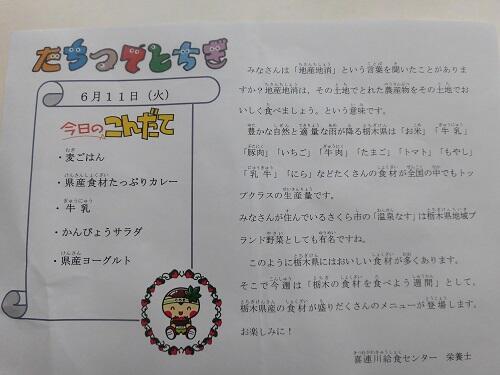 たちつてとちぎ
6月11日（火）
今日のこんだて
・麦ごはん
・県産食材たっぷりカレー
・牛乳
・かんぴょうサラダ
・県産ヨーグルト
みなさんは「地産地消」という言葉を聞いたことがありま
すか？地産地消は、その土地でとれた農産物をその土地でお
いしく食べましょう。という意味です。
豊かな自然と適量な雨が降る栃木県は「お米」「牛乳」
「豚肉」「いちご」「牛肉」「たまご」「トマト」「もやし」
「乳牛」「にら」などたくさんの食材が全国の中でもトッ
プクラスの生産量です。
みなさんが住んでいるさくら市の「温泉なす」は栃木県地域ブ
ランド野菜としても有名ですね。
このように栃木県にはおいしい食材が多くあります。
そこで今週は「栃木の食材を食べよう週間」として、
栃木県産の食材が盛りだくさんのメニューが登場します。
お楽しみに！
喜連川給食センター 栄養士